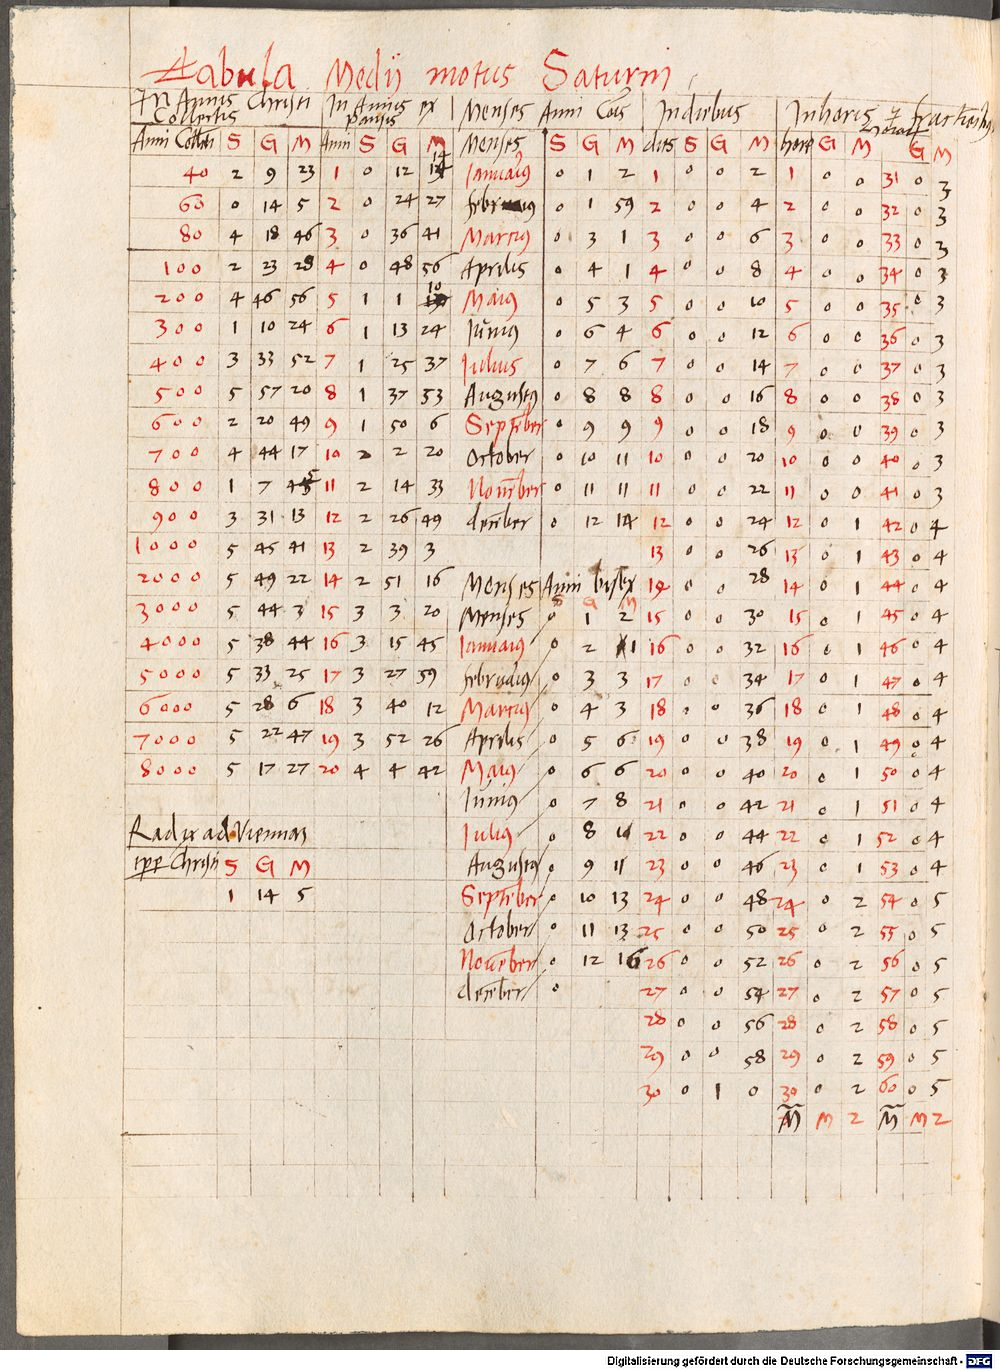 Tabula Medij motus Saturni
In Annis Christi Collectis | In Annis expansis | Menses Anni Cōis | Indiebus | Inhoris
Anni Collecti S G M | Anni S G M | Menses S G M | dies S G M | hore G M | G M
40 2 9 23 | 1 0 12 14 | Januarius 0 1 2 | 1 0 0 2 | 1 0 0 | 31 0 3
60 0 14 5 | 2 0 24 27 | 0 1 59 | 2 0 0 4 | 2 0 0 | 32 0 3
80 4 18 46 | 3 0 36 41 | Martius 0 3 1 | 3 0 0 6 | 3 0 0 | 33 0 3
100 2 23 28 | 4 0 48 56 | Aprilis 0 4 1 | 4 0 0 8 | 4 0 0 | 34 0 3
200 4 46 56 | 5 1 1 10 | Maius 0 5 3 | 5 0 0 10 | 5 0 0 | 35 0 3
300 1 10 24 | 6 1 13 24 | Junius 0 6 4 | 6 0 0 12 | 6 0 0 | 36 0 3
400 3 33 52 | 7 1 25 37 | Julius 0 7 6 | 7 0 0 14 | 7 0 0 | 37 0 3
500 5 57 20 | 8 1 37 53 | Augustus 0 8 8 | 8 0 0 16 | 8 0 0 | 38 0 3
600 2 20 49 | 9 1 50 6 | Septēber 0 9 9 | 9 0 0 18 | 9 0 0 | 39 0 3
700 4 44 17 | 10 2 2 20 | October 0 10 11 | 10 0 0 20 | 10 0 0 | 40 0 3
800 1 7 45 | 11 2 14 33 | Nouēber 0 11 11 | 11 0 0 22 | 11 0 0 | 41 0 3
900 3 31 13 | 12 2 26 49 | decēber 0 12 14 | 12 0 0 24 | 12 0 1 | 42 0 4
1000 5 45 41 | 13 2 39 3 | 13 0 0 26 | 13 0 1 | 43 0 4
2000 5 49 22 | 14 2 51 16 | Menses Anni bisex | 14 0 0 28 | 14 0 1 | 44 0 4
S G M
3000 5 44 3 | 15 3 3 20 | Menses 0 1 2 | 15 0 0 30 | 15 0 1 | 45 0 4
4000 5 38 44 | 16 3 15 45 | Januarius 0 2 1 | 16 0 0 32 | 16 0 1 | 46 0 4
5000 5 33 25 | 17 3 27 59 | februarius 0 3 3 | 17 0 0 34 | 17 0 1 | 47 0 4
6000 5 28 6 | 18 3 40 12 | Martius 0 4 3 | 18 0 0 36 | 18 0 1 | 48 0 4
7000 5 22 47 | 19 3 52 26 | Aprilis 0 5 6 | 19 0 0 38 | 19 0 1 | 49 0 4
8000 5 17 27 | 20 4 4 42 | Maius 0 6 6 | 20 0 0 40 | 20 0 1 | 50 0 4
Junius 0 7 8 | 21 0 0 42 | 21 0 1 | 51 0 4
Radix ad Viennas | Julius 0 8 | 22 0 0 44 | 22 0 1 | 52 0 4
Christi S G M | Augustus 0 9 11 | 23 0 0 46 | 23 0 1 | 53 0 4
1 14 5 | Septēber 0 10 13 | 24 0 0 48 | 24 0 2 | 54 0 5
October 0 11 13 | 25 0 0 50 | 25 0 2 | 55 0 5
Nouēber 0 12 16 | 26 0 0 52 | 26 0 2 | 56 0 5
decēber 0 | 27 0 0 54 | 27 0 2 | 57 0 5
28 0 0 56 | 28 0 2 | 58 0 5
29 0 0 58 | 29 0 2 | 59 0 5
30 0 1 0 | 30 0 2 | 60 0 5
M̃ M 2 | M̃ M 2
Digitalisierung gefördert durch die Deutsche Forschungsgemeinschaft - DFG